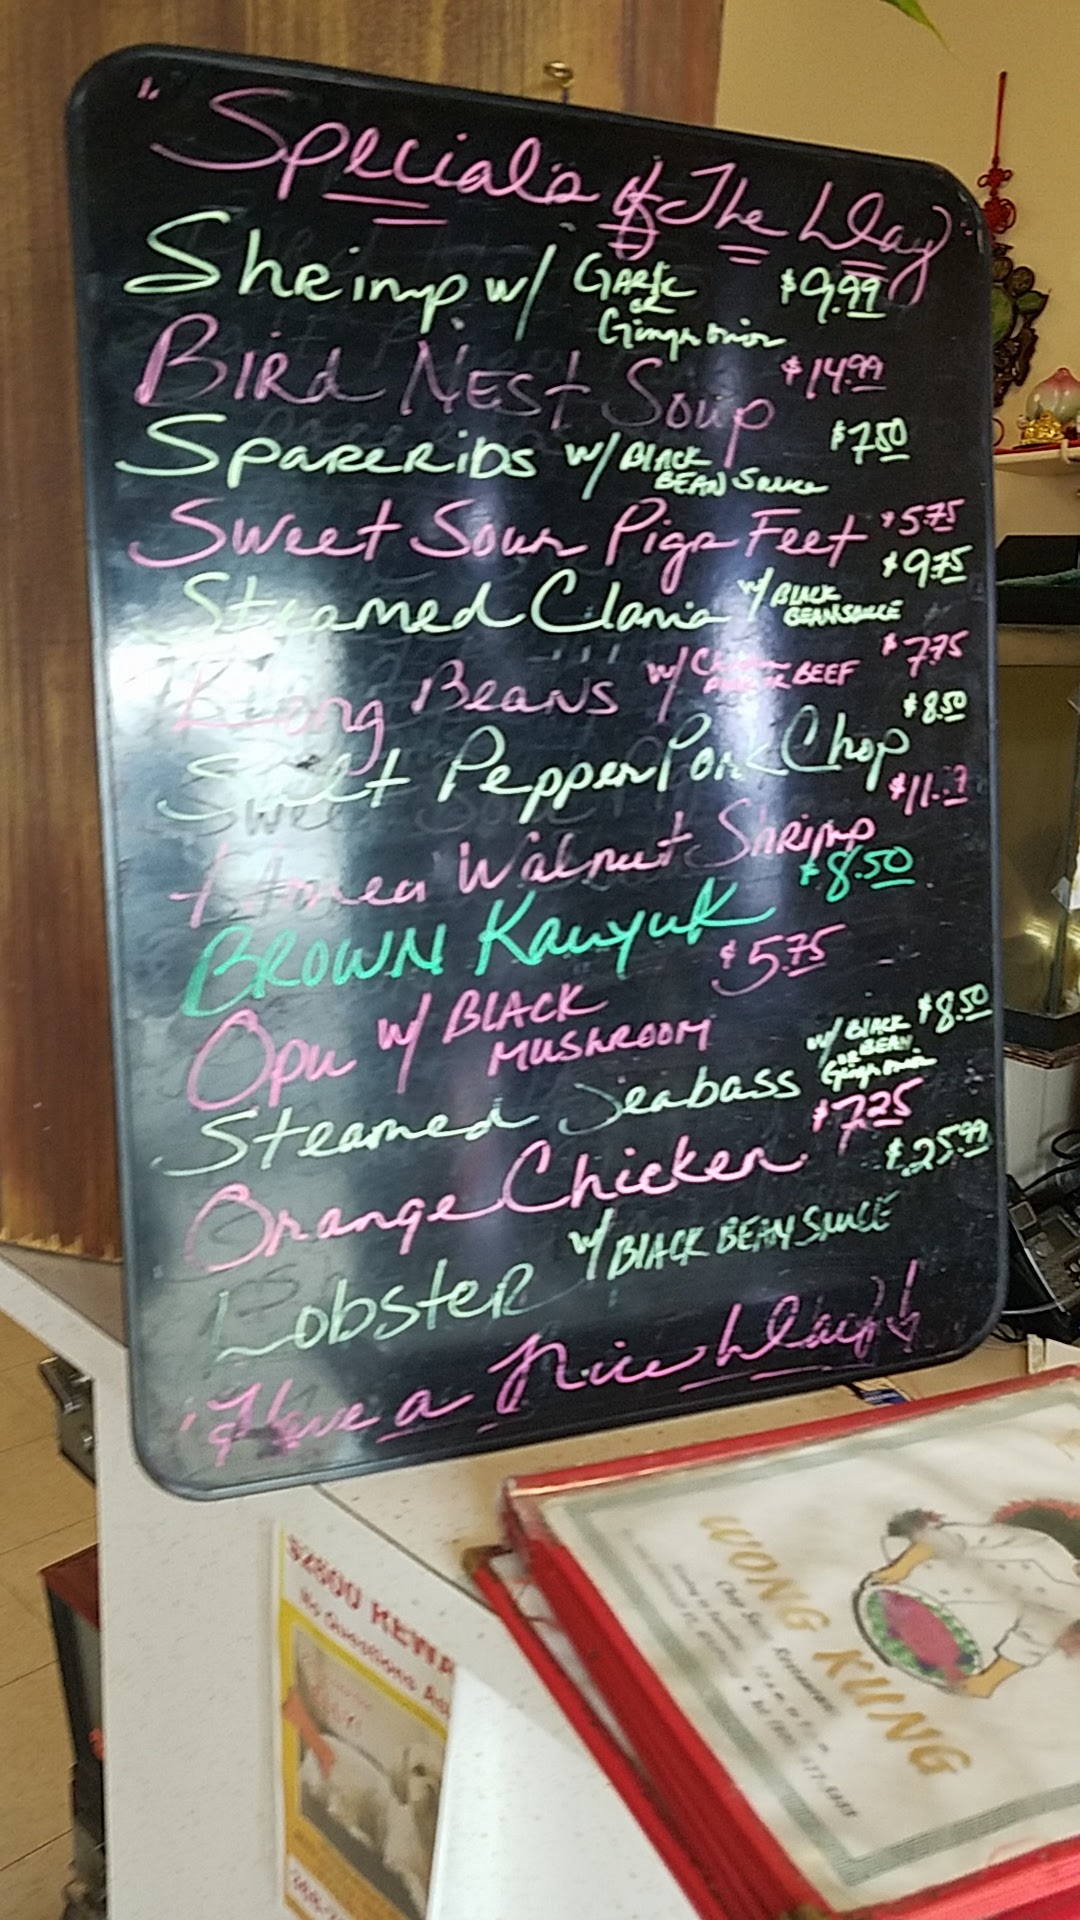 "Specials of The Day
Shrimp w/ Garlic or Ginger Onion $9.99
Bird Nest Soup $14.99
Spareribs w/ Black Bean Sauce $7.50
Sweet Sour Pigs Feet $5.75
Steamed Clams w/ Black Bean Sauce $9.75
Long Beans w/ BEEF $7.75
Salt Pepper Pork Chop $8.50
Honey Walnut Shrimp $11.
BROWN Kauyuk $8.50
Opu w/ BLACK MUSHROOM $5.75
Steamed Seabass w/ BLACK BEAN or Ginger Onion $8.50
Orange Chicken $7.25
Lobster w/ BLACK BEAN SAUCE $25.99
"Have a Nice Day"!
WONG KUNG
Chop Suey Restaurant
$2500 REWA
No Questions As